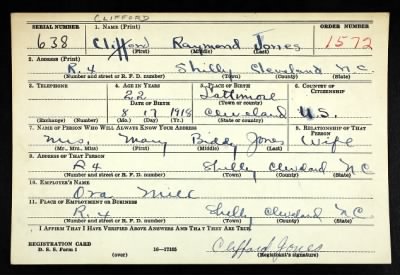 CLIFFORD
SERIAL NUMBER 1. NAME (Print) ORDER NUMBER
638 Clifford Raymond Jones 1572
(First) (Middle) (Last)
2. ADDRESS (Print)
R.4 Shelby Cleveland N.C.
(Number and street or R. F. D. number) (Town) (County) (State)
3. TELEPHONE 4. AGE IN YEARS 5. PLACE OF BIRTH 6. COUNTRY OF CITIZENSHIP
22 Lattimore
DATE OF BIRTH (Town or county)
8 17 1918 Cleveland U.S.
(Exchange) (Number) (Mo.) (Day) (Yr.) (State or country)
7. NAME OF PERSON WHO WILL ALWAYS KNOW YOUR ADDRESS 8. RELATIONSHIP OF THAT PERSON
Mrs. Mary Biddy Jones Wife
(Mr., Mrs., Miss) (First) (Middle) (Last)
9. ADDRESS OF THAT PERSON
R4 Shelby Cleveland N C
(Number and street or R. F. D. number) (Town) (County) (State)
10. EMPLOYER'S NAME
Ora Mill
11. PLACE OF EMPLOYMENT OR BUSINESS
R.4 Shelby Cleveland N.C.
(Number and street or R. F. D. number) (Town) (County) (State)
I AFFIRM THAT I HAVE VERIFIED ABOVE ANSWERS AND THAT THEY ARE TRUE.
REGISTRATION CARD
D. S. S. Form 1 16—17105 Clifford Jones
(over) (Registrant's signature)